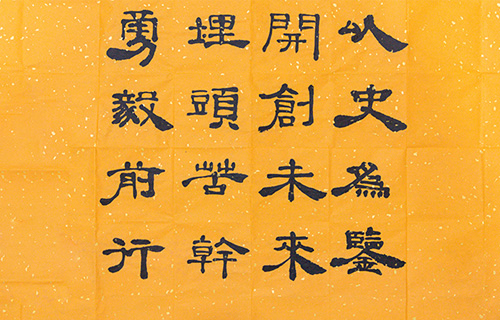 以史為鑒
開創未來
埋頭苦幹
勇毅前行